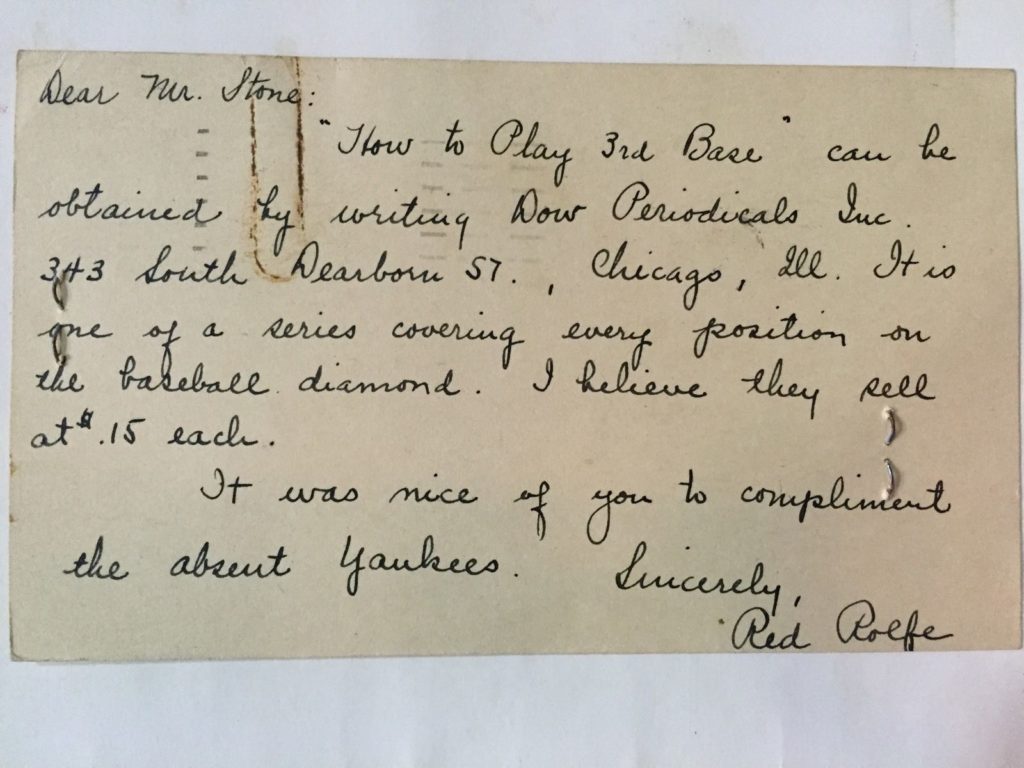 Dear Mr. Stone:
"How to Play 3rd Base" can be
obtained by writing Dow Periodicals Inc.
343 South Dearborn ST., Chicago, Ill. It is
one of a series covering every position on
the baseball diamond. I believe they sell
at $.15 each.
It was nice of you to compliment
the absent Yankees. Sincerely,
Red Rolfe